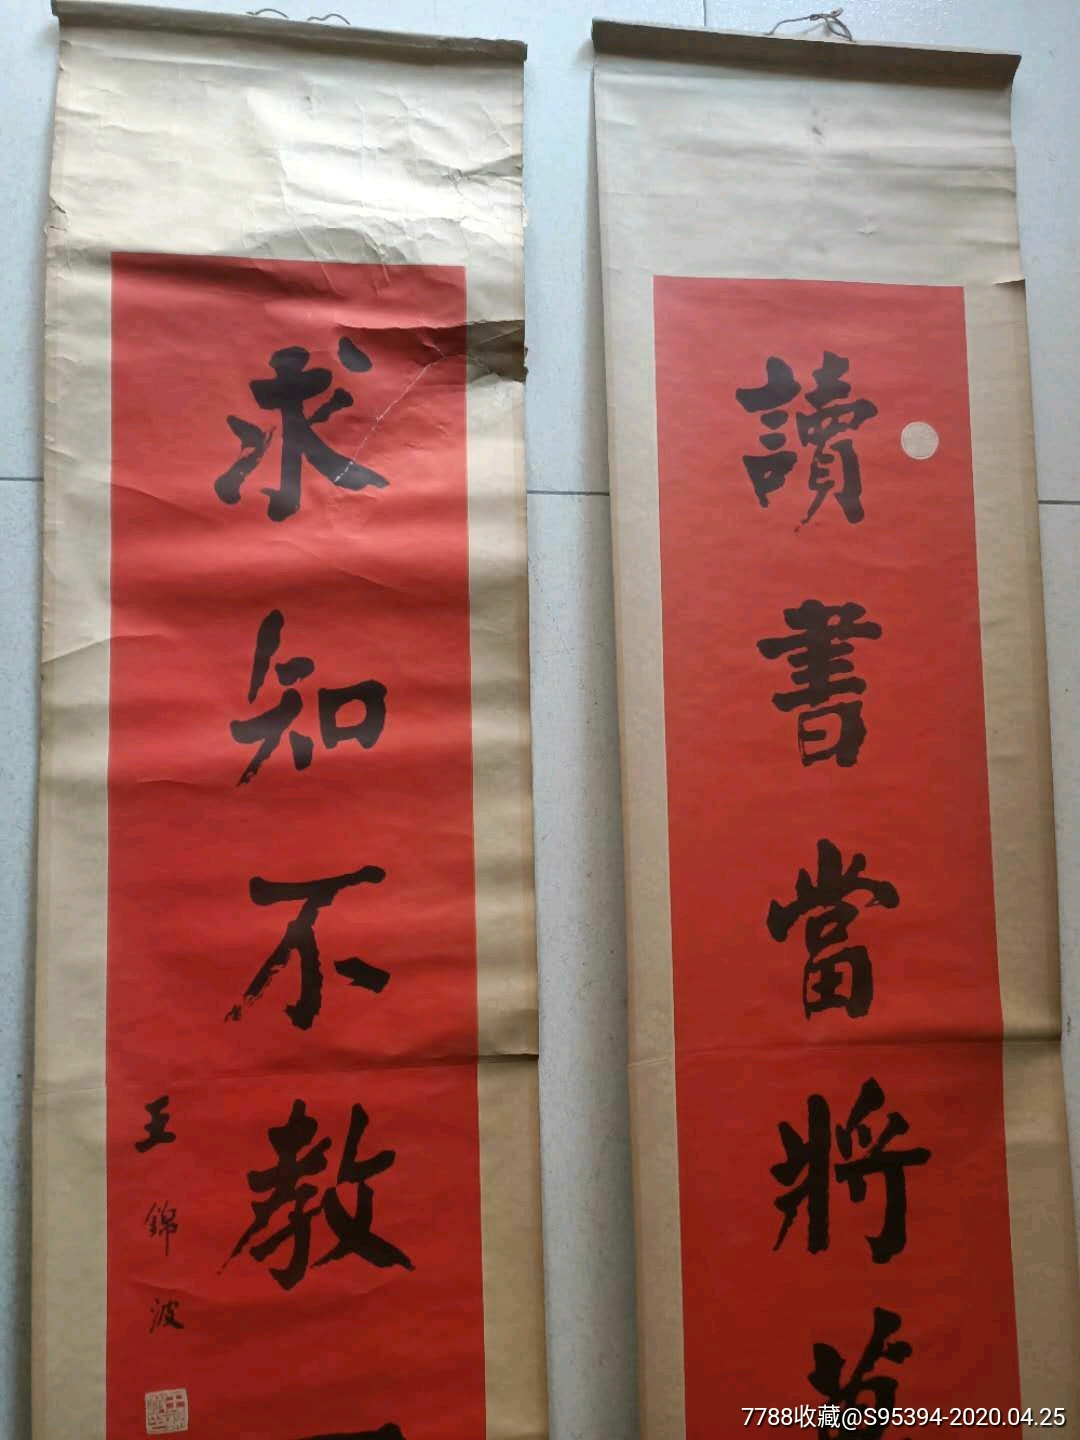 讀書當將萬
求知不教一
王錦波
7788收藏@S95394-2020.04.25